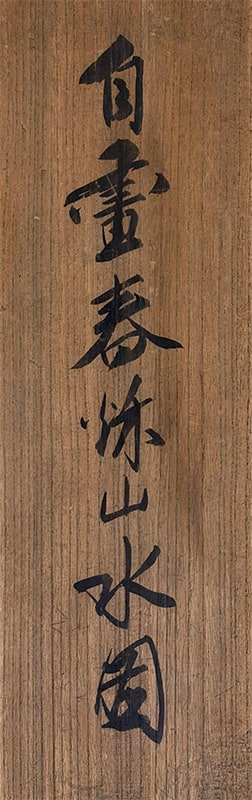 自畫春秌山水圖